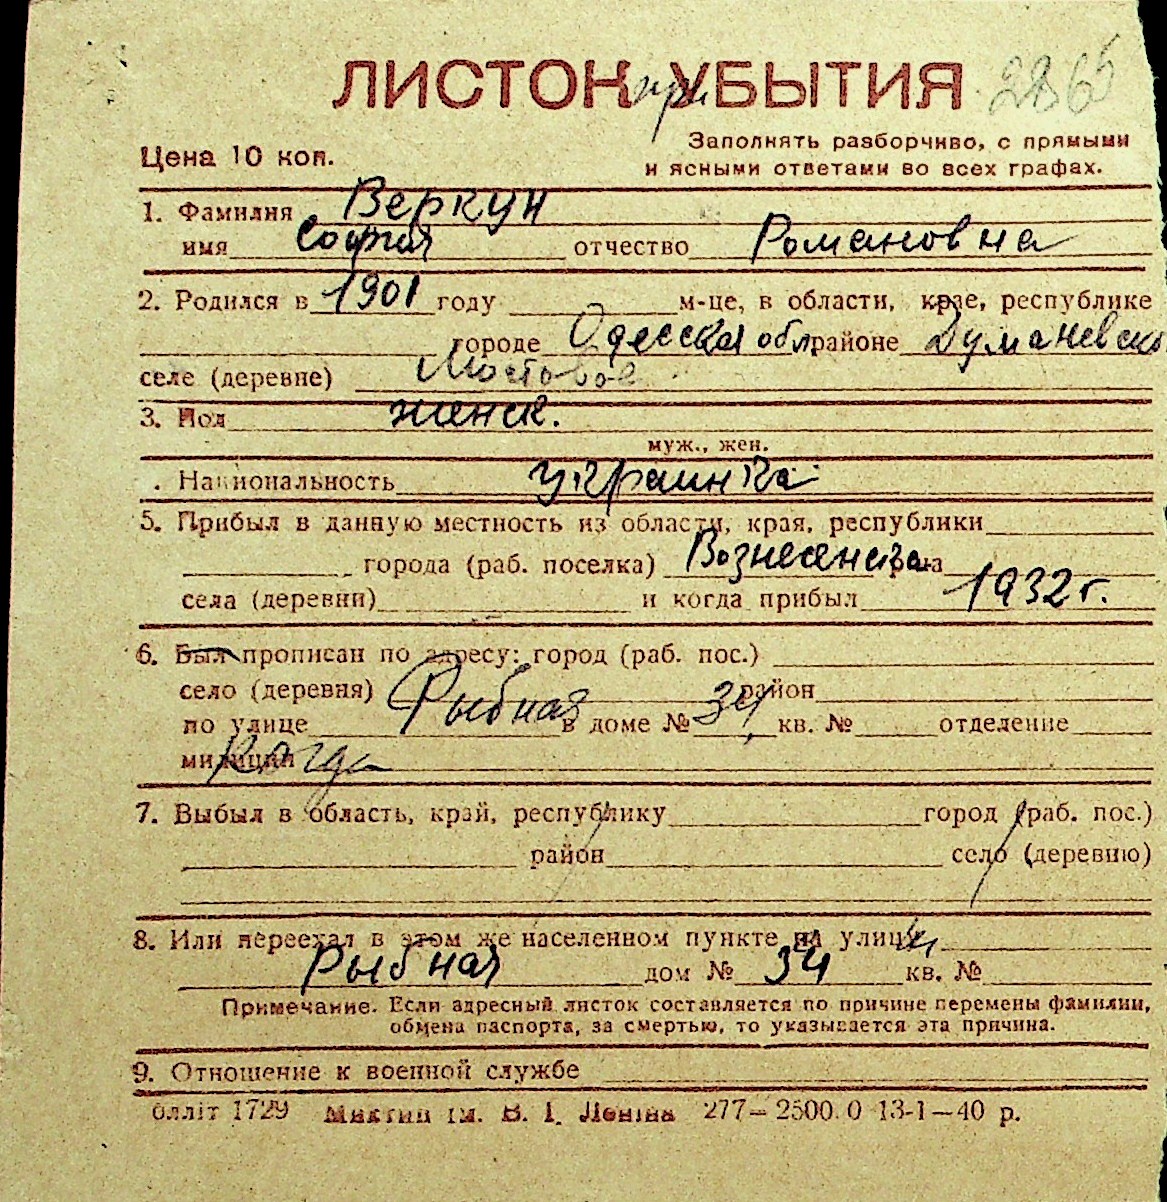 ЛИСТОК при УБЫТИЯ 2865
Заполнять разборчиво, с прямыми
Цена 10 коп.
и ясными ответами во всех графах.
1. Фамилия Веркун
имя София отчество Романовна
2. Родился в 1901 году м-це, в области, крае, республике
городе Одесская обл районе Думаневско
селе (деревне) Мостовое
3. Пол женск.
муж., жен.
. Национальность украинка
5. Прибыл в данную местность из области, края, республики
города (раб. поселка) Вознесенска
села (деревни) и когда прибыл 1932 г.
6. Был прописан по адресу: город (раб. пос.)
село (деревня) район
по улице Рыбная в доме № 34 кв. № отделение
милиции
7. Выбыл в область, край, республику город (раб. пос.)
район село (деревню)
8. Или переехал в этом же населенном пункте на улицу
Рыбная дом № 34 кв. №
Примечание. Если адресный листок составляется по причине перемены фамилии,
обмена паспорта, за смертью, то указывается эта причина.
9. Отношение к военной службе
блліт 1729 ім. В. І. Леніна 277—2500.0 13-1—40 р.